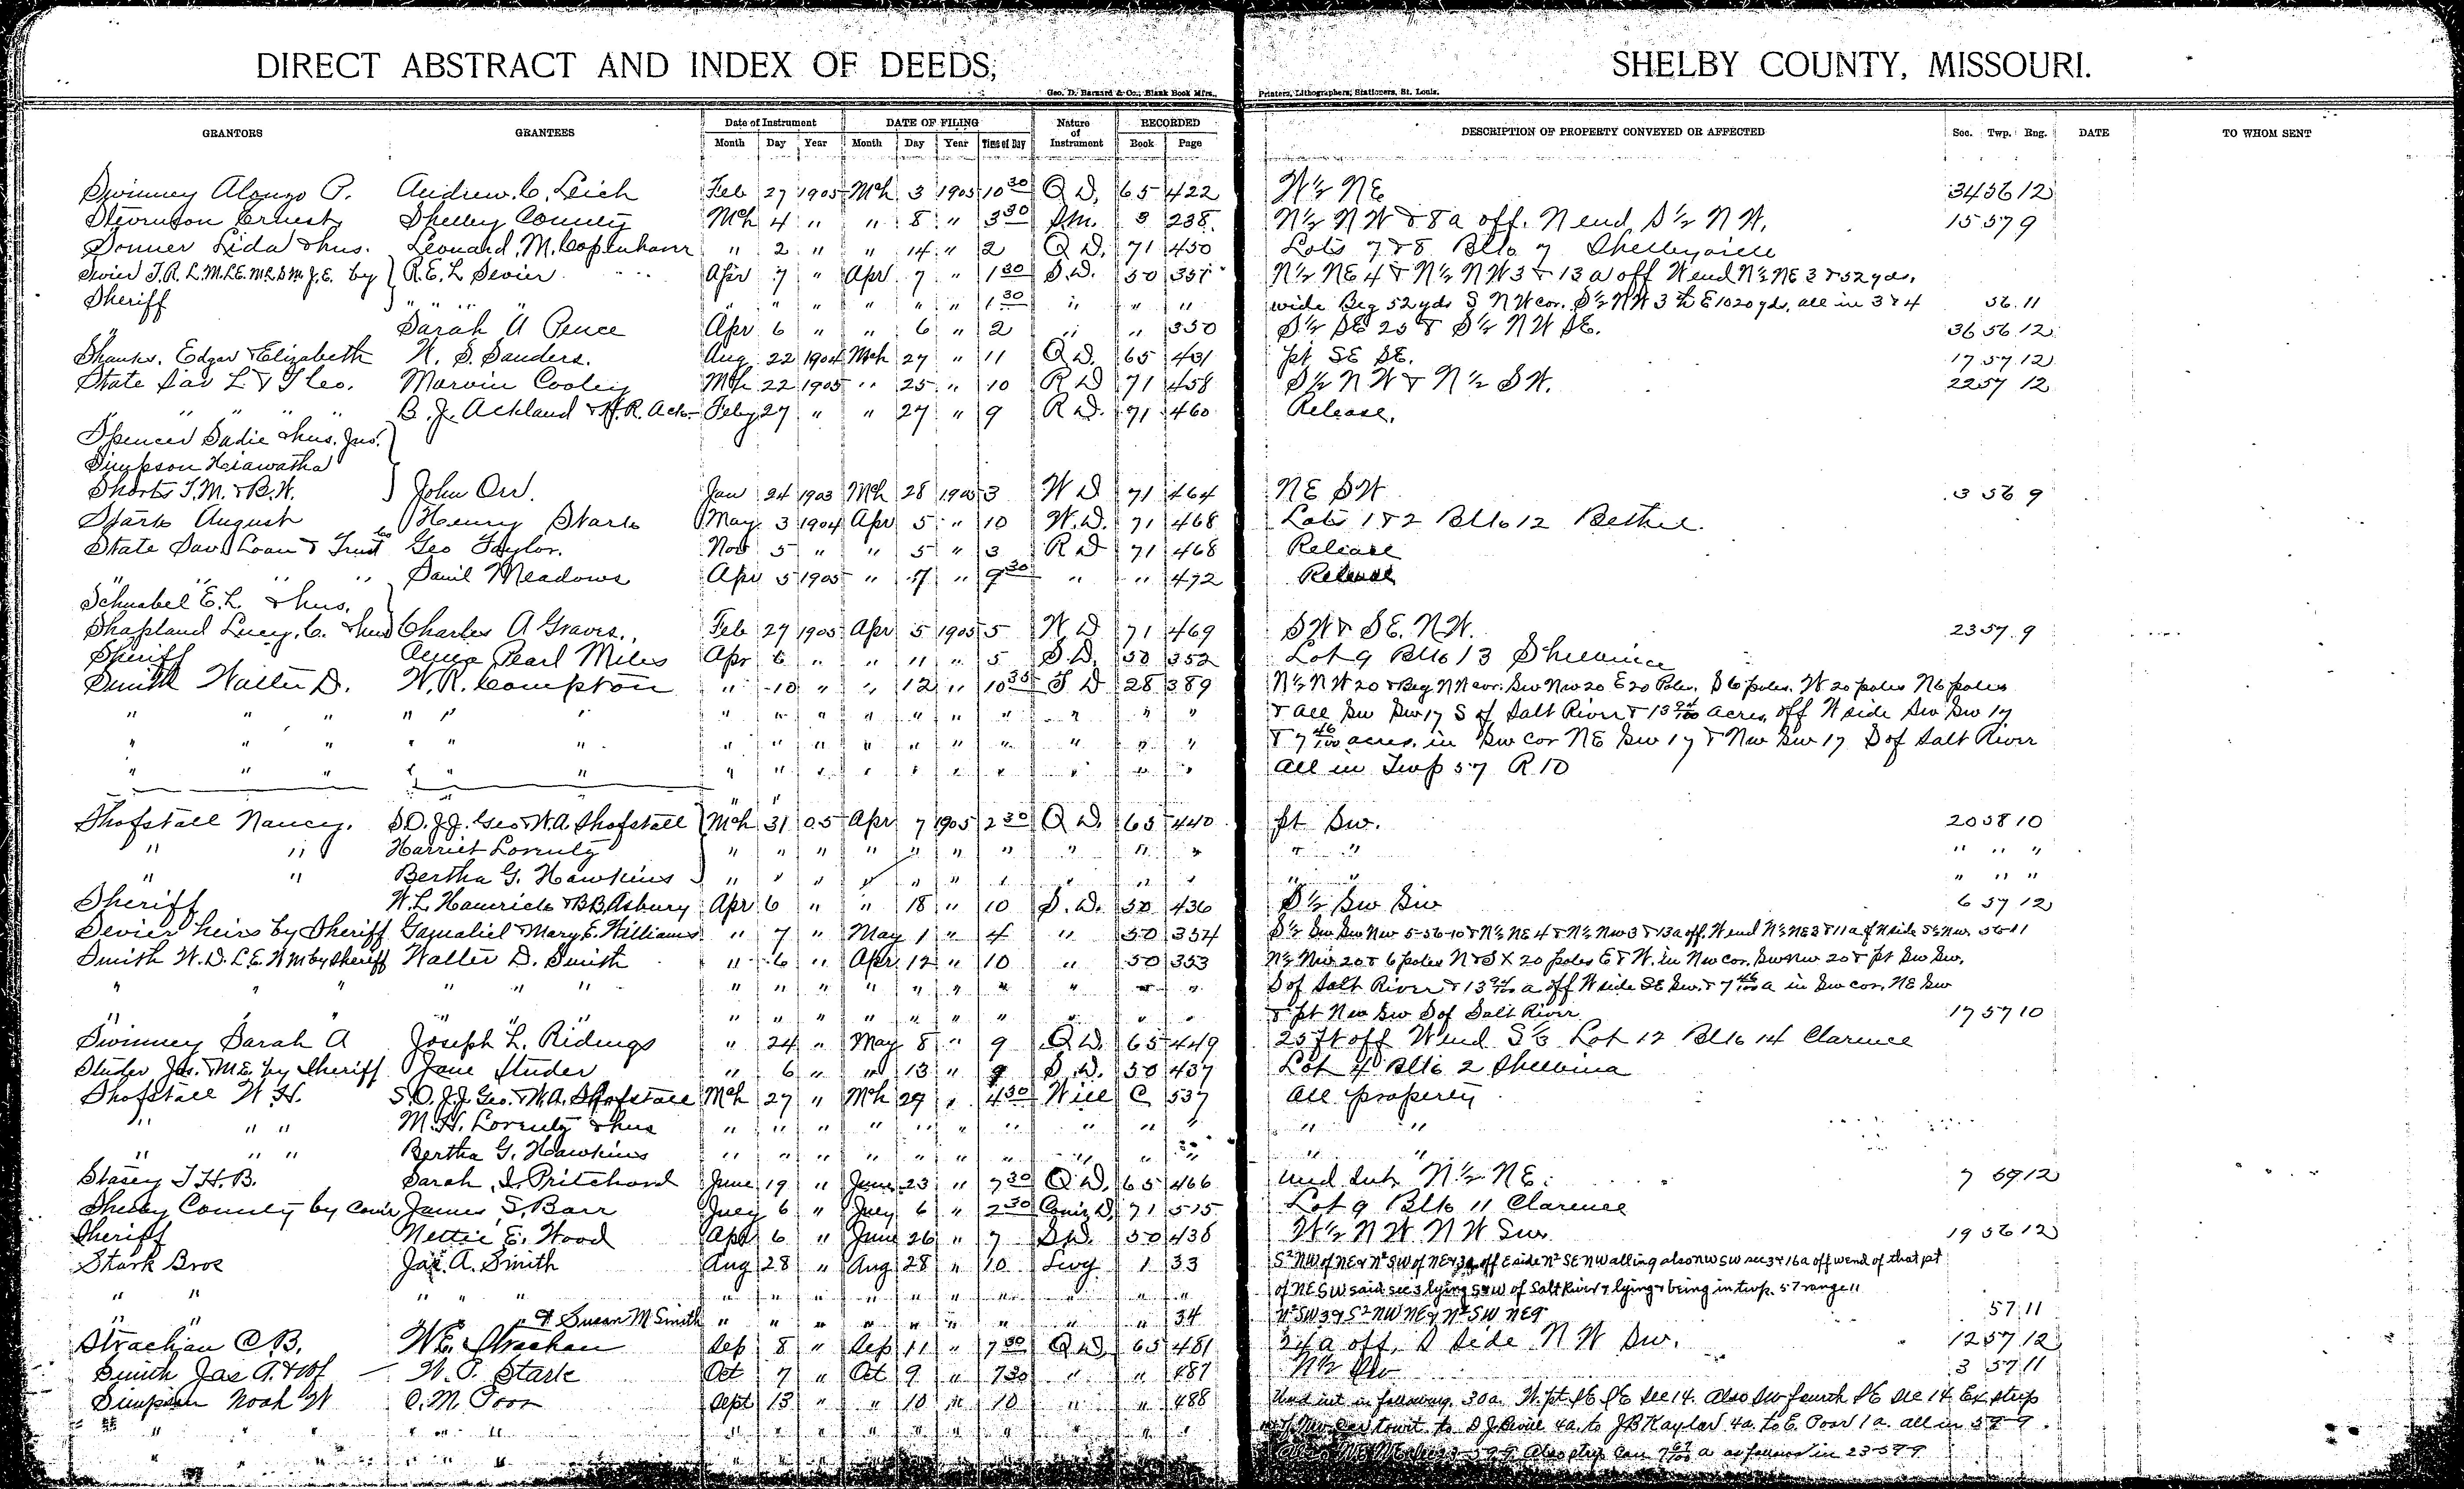 DIRECT ABSTRACT AND INDEX OF DEEDS, SHELBY COUNTY, MISSOURI.
Geo. D. Barnard & Co., Blank Book Mfrs., Printers, Lithographers, Stationers, St. Louis.
GRANTORS GRANTEES Date of Instrument DATE OF FILING Nature of Instrument RECORDED DESCRIPTION OF PROPERTY CONVEYED OR AFFECTED Sec. Twp. Rng. DATE TO WHOM SENT
Month Day Year Month Day Year Time of Day Book Page
Swinney Alonzo P. Andrew C. Leich Feb 27 1905 Mch 3 1905 10 30 Q D. 65 422 W½ NE 34 56 12
Stevenson Ernest Shelby County Mch 4 " " 8 " 3 30 S.M. 3 238 N½ N W & 8a off. N end S½ N W. 15 57 9
Sonner Lida & hus. Leonard M. Copenhaver " 2 " " 14 " 2 Q D. 71 450 Lots 7 & 8 Blk 7 Shelbyville
Sevier T.R. L.M. L.E. by } R.E. L Sevier Apr 7 " Apr 7 " 1 30 S.D. 50 351 N½ NE 4 & N½ N W 3 & 13 a off W end N½ NE 3 & 52 yds.
Sheriff " " " " " " " " " " 1 30 " " " wide Beg 52 yds S N W cor. S½ N W 3 th E 1020 yds, all in 3 & 4 56 11
" Sarah A Pence Apr 6 " " 6 " 2 " " 350 S½ SE 25 & S½ N W SE. 36 56 12
Shanks, Edgar & Elizabeth W. S. Sanders. Aug 22 1904 Mch 27 " 11 Q D. 65 431 pt SE SE. 17 57 12
State Sav L & T Co. Marvin Cooley Mch 22 1905 " 25 " 10 R D 71 458 S½ N W & N½ S W. 22 57 12
" " " " " B. J. Ackland & H. R. Feby 27 " " 27 " 9 R D. 71 460 Release.
Spencer Sadie & hus. Jno. }
Simpson Hiawatha
Shorts T.M. & B.W. } John Orr. Jan 24 1903 Mch 28 1905 3 W D 71 464 NE SW 3 56 9
Stark August Henry Stark May 3 1904 Apr 5 " 10 W.D. 71 468 Lots 1 & 2 Blk 12 Bethel.
State Sav. Loan & Trust Co Geo Taylor. Nov 5 " " 5 " 3 R D 71 468 Release
" " " " Danil Meadows Apr 5 1905 " 7 " 9 30 " " 472 Release
Schnabel E.L. & hus. }
Shapland Lucy, C. & hus Charles A Graves., Feb 27 1905 Apr 5 1905 5 W D 71 469 SW & SE. N.W. 23 57 9
Sheriff Pearl Miles Apr 6 " " 11 " 5 S D. 50 352 Lot 9 Blk 13 Shelbina
Smith Walter D. W. R. Compton " 10 " " 12 " 10 35 T D 28 389 N½ N W 20 & Beg N W cor. Sw Nw 20 E 20 Poles. S 6 poles. W 20 poles N 6 poles
" " " " " " " " " " " " " " " " & all Sw Sw 17 S of Salt River & 13 24/100 acres, off W side Sw Sw 17
" " " " " " " " " " " " " " " " & 7 46/100 acres. in Sw cor NE Sw 17 & Nw Sw 17 S of Salt River
" " " " " " " " " " " " " " " " all in Twp 57 R 10
Shofstall Nancy. S.O. J.J. Geo & W.A. Shofstall } Mch 31 05 Apr 7 1905 2 30 Q D. 65 440 pt Sw. 20 58 10
" " Harriet Lorentz " " " " " " " " " " " " " " "
" " Bertha G. Hawkins } " " " " " " " " " " " " " " "
Sheriff W.L. Hamrick & B.B. Asbury Apr 6 " " 18 " 10 S. D. 50 436 S½ Sw Sw 6 57 12
Sevier heirs by Sheriff Gamaliel & Mary E. Williams " 7 " May 1 " 4 " 50 354 S½ Sw Sw Nw 5-56-10 & N½ NE 4 & N½ Nw 3 & 13a off. W end N½ NE 3 & 11a of N side S½ Nw. 56-11
Smith W. D. L.E. by Sheriff Walter D. Smith " 6 " Apr 12 " 10 " 50 353 N½ Nw 20 & 6 poles N & S X 20 poles E & W. in Nw cor. Sw Nw 20 & pt Sw Sw.
" " " " " " " " " " " " " " " S of Salt River & 13 24/100 a off W side SE Sw. & 7 46/100 a in Sw cor. NE Sw
" " " " " " " " " " " " " " " & pt Nw Sw S of Salt River 17 57 10
Swinney Sarah A Joseph L. Ridings " 24 " May 8 " 9 Q D. 65 449 25 ft off W end S⅓ Lot 12 Blk 14 Clarence
Studer Jos. & M.E. by Sheriff Jane Studer " 6 " " 13 " 9 S. D. 50 437 Lot 4 Blk 2 Shelbina
Shofstall W. H. S.O. J.J. Geo. & W.A. Shofstall Mch 27 " Mch 29 " 4 30 Will C 537 all property
" " " M.H. Lorentz & hus " " " " " " " " " " " "
" " " Bertha G. Hawkins " " " " " " " " " " " "
Stasey T.H.B. Sarah I. Pritchard June 19 " June 23 " 7 30 Q D. 65 466 und Int N½ NE. 7 59 12
Shelby County by James S. Barr July 6 " July 6 " 2 30 71 515 Lot 9 Blk 11 Clarence
Sheriff Nettie E. Wood Apr 6 " June 26 " 7 S D. 50 438 W½ N W N W Sw. 19 56 12
Stark Bros Jas. A. Smith Aug 28 " Aug 28 " 10 Levy 1 33 S² NW of NE & N² SW of NE & 3a off E side N² SE NW all in 9 also NW SW sec 3 & 16a off w end of that pt
" " " " " " " " " " " " " " of NE SW said sec 3 lying S & W of Salt River & lying & being in twp. 57 range 11
" " " " & Susan M Smith " " " " " " " " " 34 N² SW 3 & S² NW NE & N² SW NE 9 57 11
Strachan C.B. W.E. Strachan Sep 8 " Sep 11 " 7 30 Q D. 65 481 24 a off, S side N W Sw. 12 57 12
Smith Jas A. & Wf — W. P. Stark Oct 7 " Oct 9 " 7 30 " " 487 N½ Sw 3 57 11
Simpson Noah W O. M. Poor Sept 13 " " 10 " 10 " " 488 Und int in following. 30a. W. pt SE SE Sec 14. Also Sw fourth SE Sec 14. Ex strip
" " " " " " " " " " " " " " to wit. to D J 4a. to J B Kaylor 4a. to E. Poor 1 a. all in 58-9.
" " " " " " " " " " " " " " Also strip Con 7 a as follows in 23-58-9